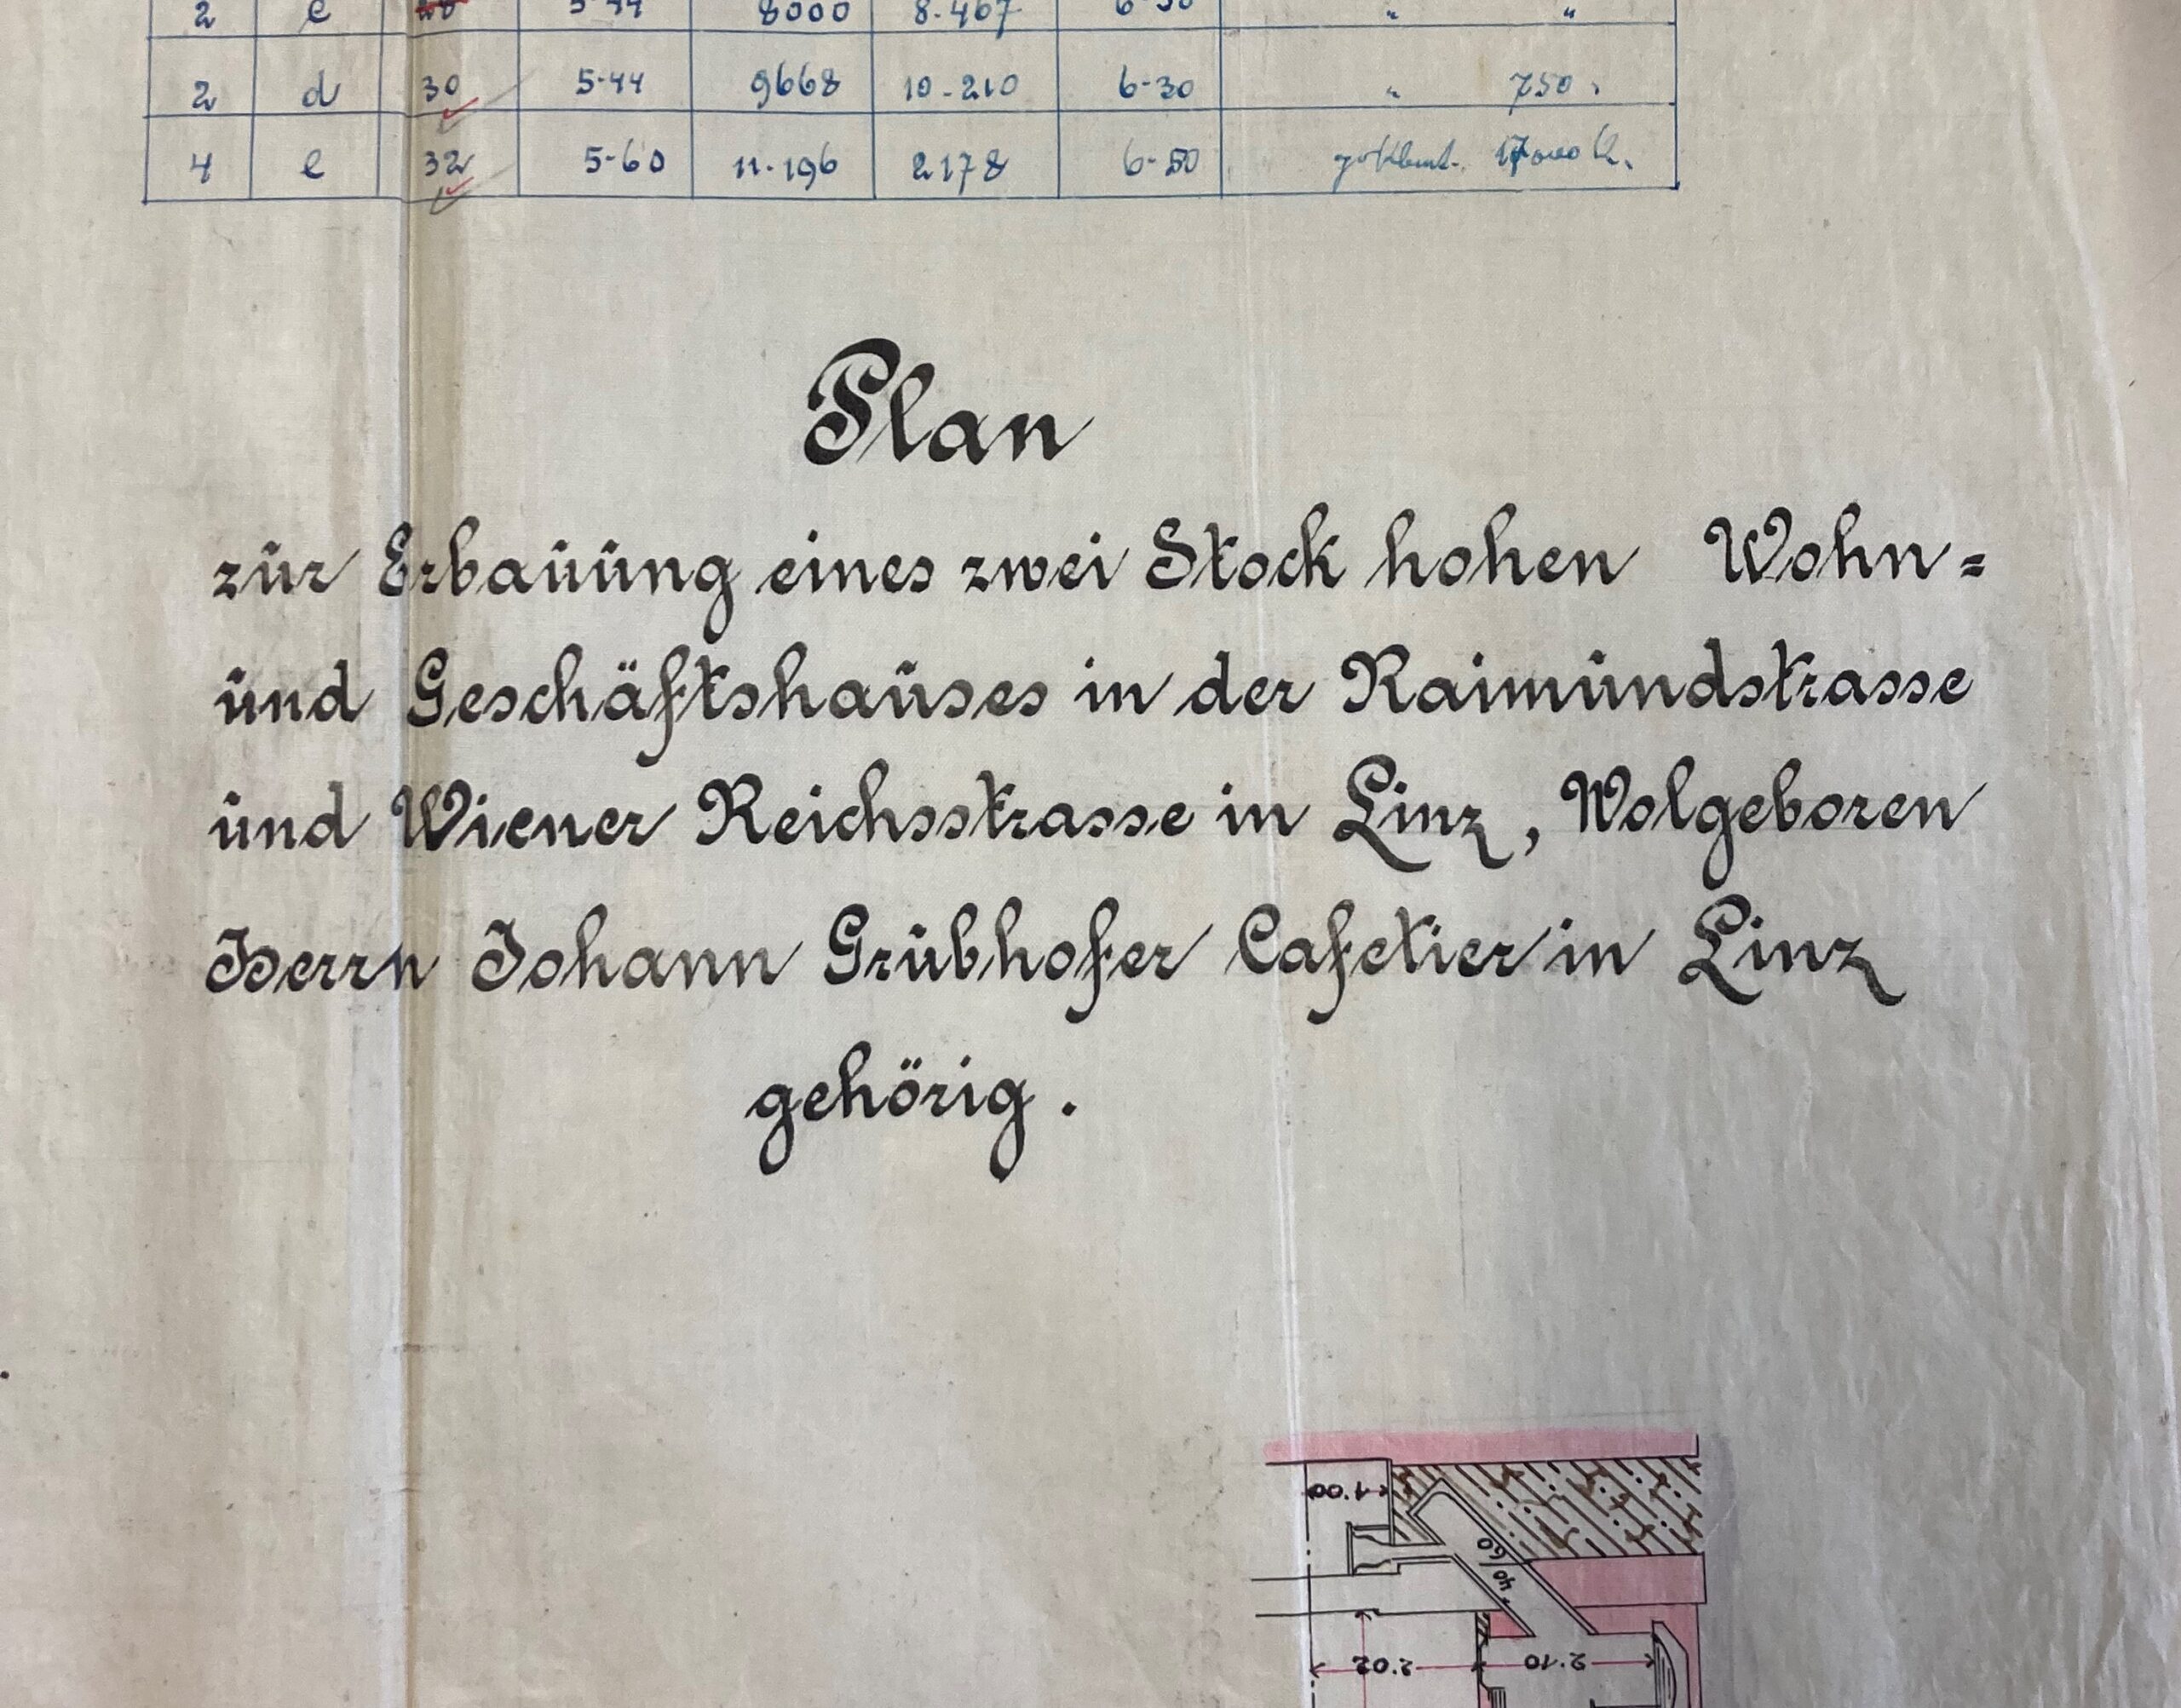 2 e 5·44 8000 8·467 6-50 " "
2 d 30 5·44 9668 10-210 6-30 " 750
4 e 32 5-60 11·196 2178 6-50
Plan
zur Erbauung eines zwei Stock hohen Wohn=
und Geschäftshauses in der Raimundstrasse
und Wiener Reichsstrasse in Linz, Wolgeboren
Herrn Johann Grubhofer Cafetier in Linz
gehörig.
1·00
40/60
2·02 2·10